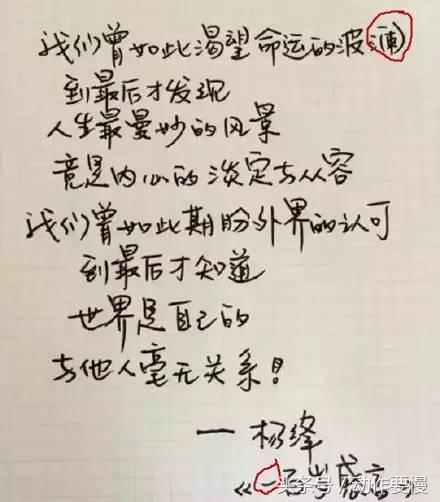 我们曾如此渴望命运的波澜
到最后才发现
人生最曼妙的风景
竟是内心的淡定与从容
我们曾如此期盼外界的认可
到最后才知道
世界是自己的
与他人毫无关系！
— 杨绛
《一百岁感言》
头条号 / 动作要慢